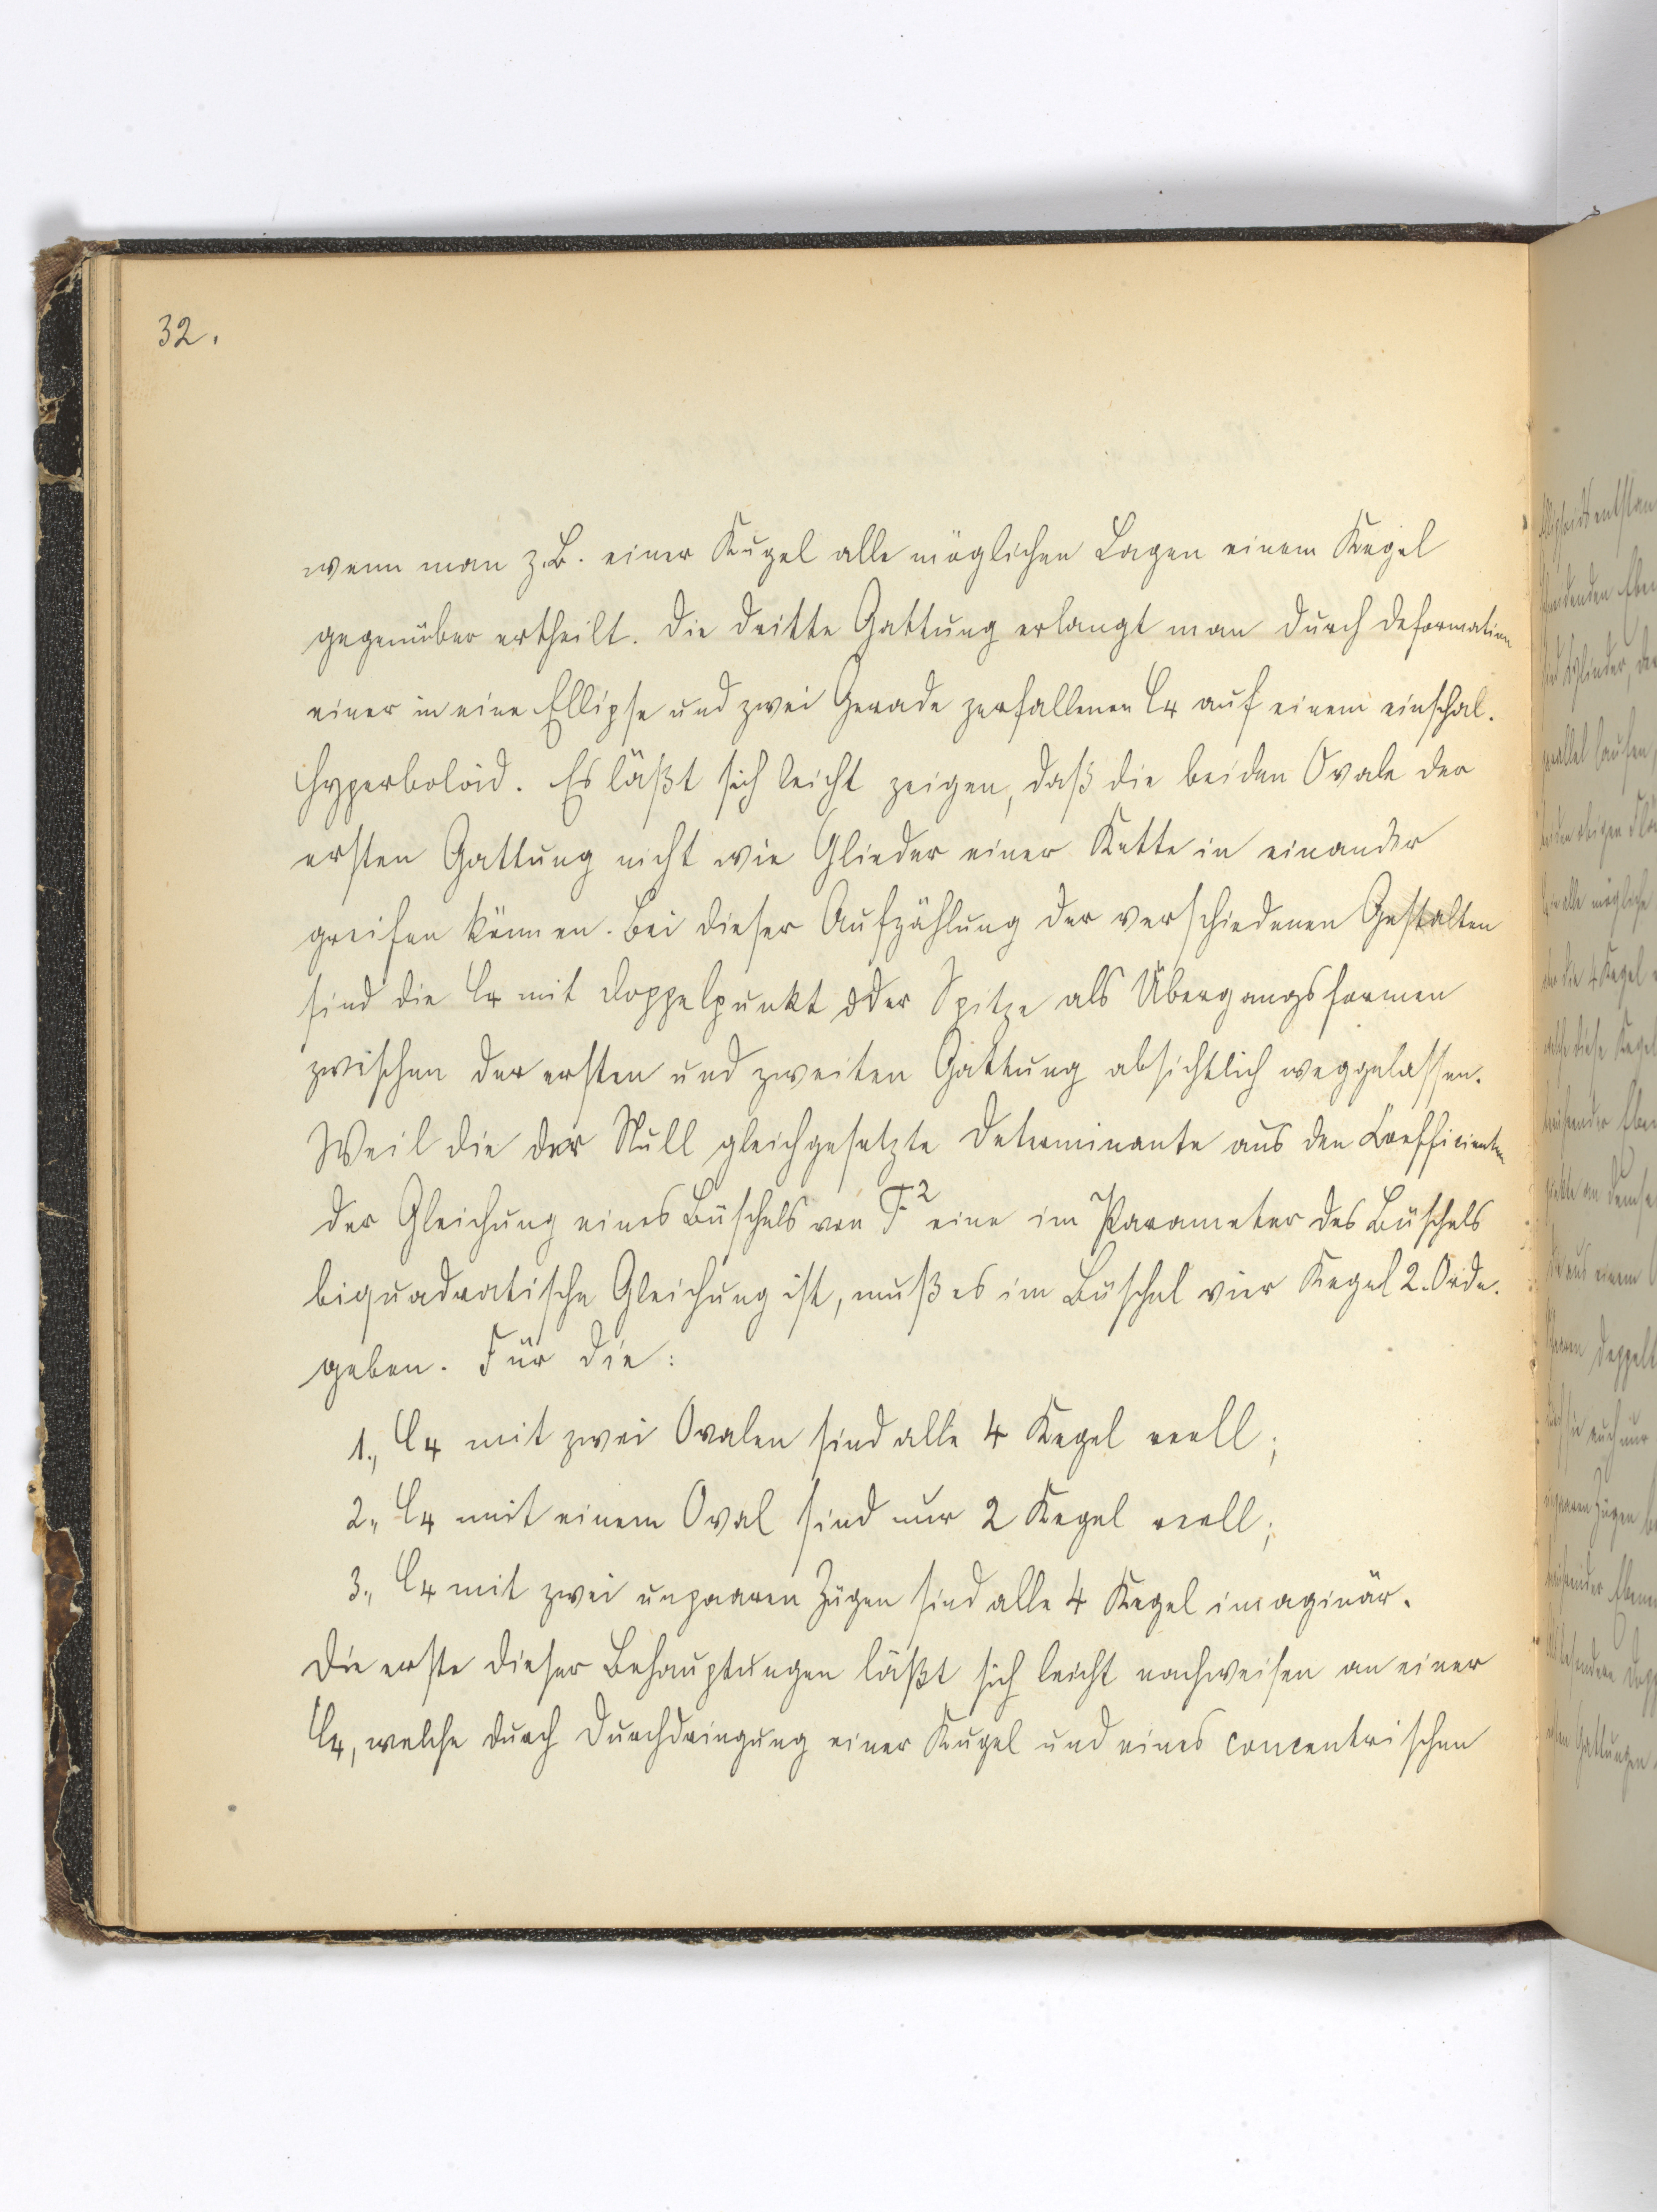 32.
wenn man z.B. einer Kugel alle möglichen Lagen einem Kegel
gegenüber ertheilt. Die dritte Gattung erlangt man durch Deformation
einer in eine Ellipse und zwei Gerade zerfallenen C₄ auf einem einschal.
Hyperboloid. Es läßt sich leicht zeigen, daß die beiden Ovale der
ersten Gattung nicht wie Glieder einer Kette in einander
greifen können. Bei dieser Aufzählung der verschiedenen Gestalten
sind die C₄ mit Doppelpunkt oder Spitze als Übergangsformen
zwischen der ersten und zweiten Gattung absichtlich weggelassen.
Weil die der Null gleichgesetzte Determinante aus den Coefficienten
der Gleichung eines Büschels von F² eine im Parameter des Büschels
biquadratische Gleichung ist, muß es im Büschel vier Kegel 2. Ordn.
geben. Für die:
1., C₄ mit zwei Ovalen sind alle 4 Kegel reell;
2., C₄ mit einem Oval sind nur 2 Kegel reell;
3., C₄ mit zwei unpaaren Zügen sind alle 4 Kegel imaginär.
Die erste dieser Behauptungen läßt sich leicht nachweisen an einer
C₄, welche durch Durchdringung einer Kugel und eines concentrischen